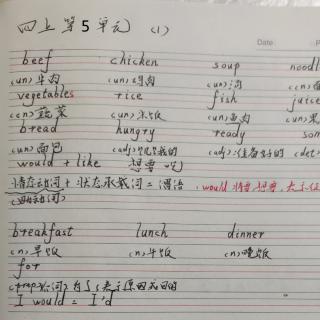 四上第5单元 (1)
Date
beef chicken soup noodl
(un)牛肉 (un)鸡肉 (un)汤
vegetables rice fish juice
(cn)蔬菜 (un)米饭 (un)鱼肉 (un)果
bread hungry ready som
(un)面包 (adj)饥饿的 (adj)准备好的 (det
would + like 想要
情态动词+状态承载词=谓语 would 将要,想要,表示
breakfast lunch dinner
(n)早饭 (n)午饭 (n)晚饭
for
(prep介词)为了表示原因或目的
I would = I'd